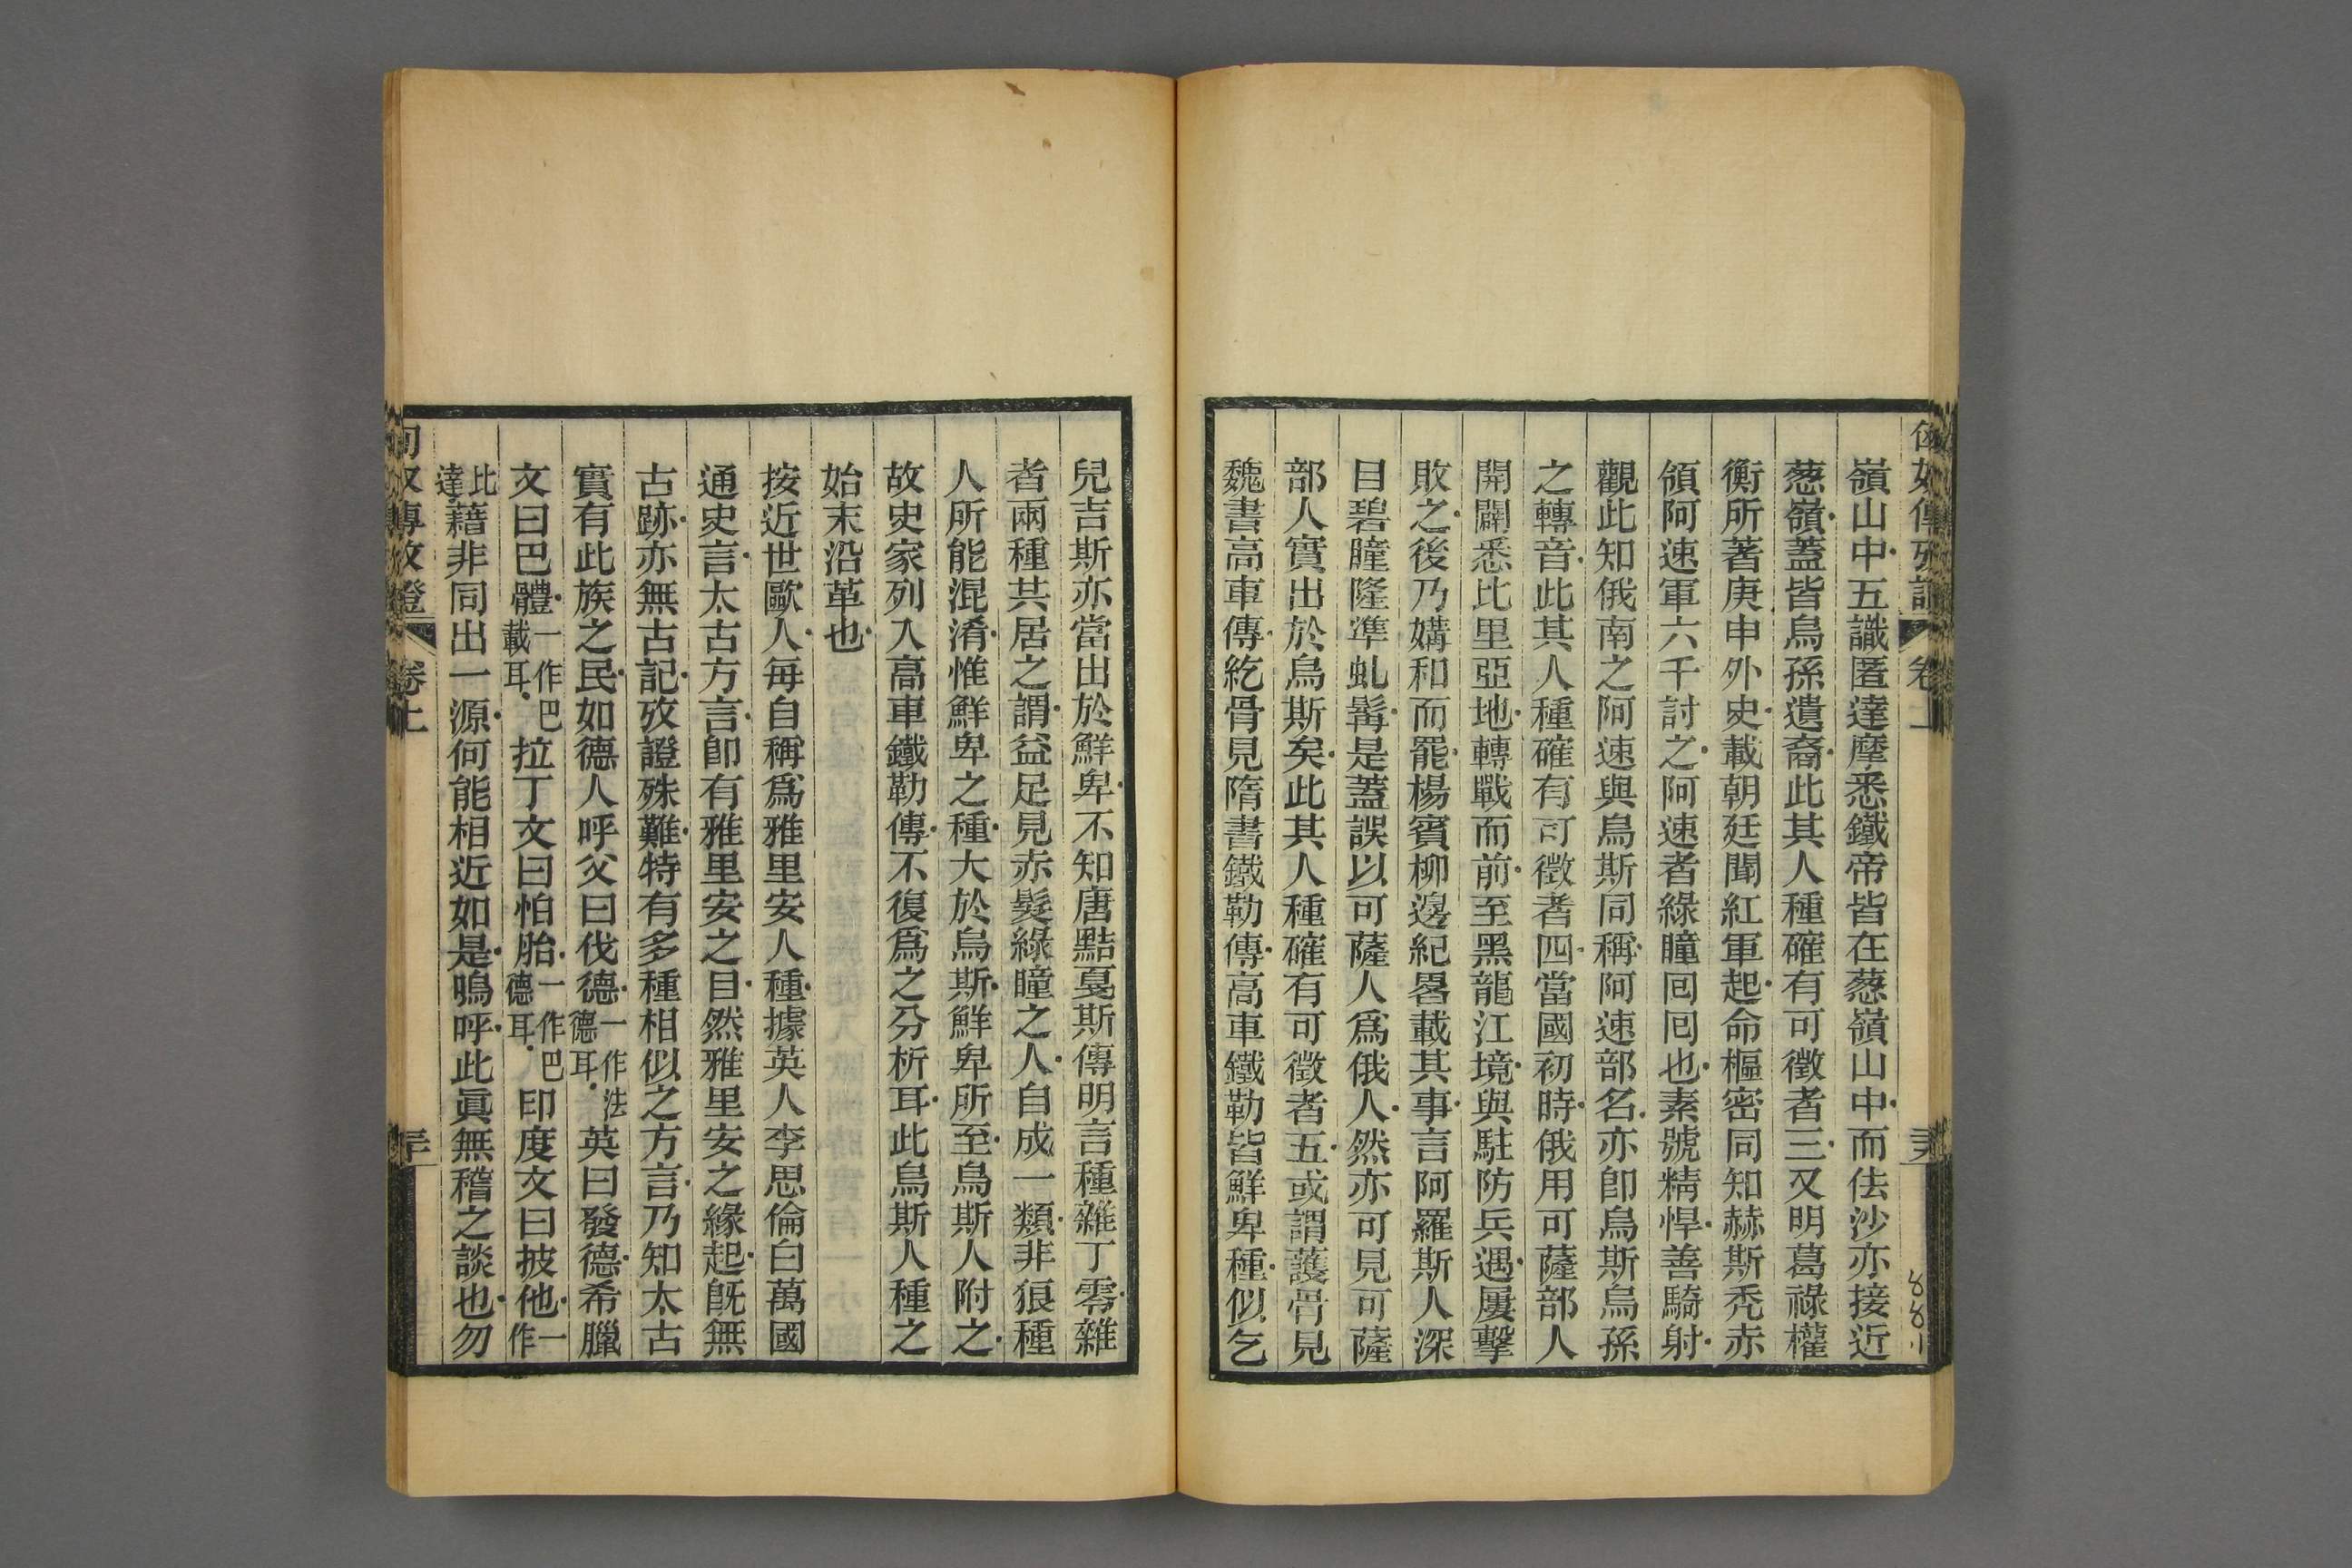 嶺山中五識匿達摩悉鐵帝皆在葱嶺山中而佉沙亦接近
葱嶺蓋皆烏孫遺裔此其人種確有可徵者三又明葛祿權
衡所著庚申外史載朝廷聞紅軍起命樞密同知赫斯禿赤
領阿速軍六千討之阿速者綠瞳回回也素號精悍善騎射
觀此知俄南之阿速與烏斯同稱阿速部名亦卽烏斯烏孫
之轉音此其人種確有可徵者四當國初時俄用可薩部人
開闢悉比里亞地轉戰而前至黑龍江境與駐防兵遇屢擊
敗之後乃媾和而罷楊賓柳邊紀畧載其事言阿羅斯人深
目碧瞳隆準虬髯是蓋誤以可薩人爲俄人然亦可見可薩
部人實出於烏斯矣此其人種確有可徵者五或謂護骨見
魏書高車傳紇骨見隋書鐵勒傳高車鐵勒皆鮮卑種似乞
兒吉斯亦當出於鮮卑不知唐黠戛斯傳明言種雜丁零雜
者兩種共居之謂益足見赤髮綠瞳之人自成一類非狼種
人所能混淆惟鮮卑之種大於烏斯鮮卑所至烏斯人附之
故史家列入高車鐵勒傳不復爲之分析耳此烏斯人種之
始末沿革也
按近世歐人每自稱爲雅里安人種據英人李思倫白萬國
通史言太古方言卽有雅里安之目然雅里安之緣起旣無
古跡亦無古記攷證殊難特有多種相似之方言乃知太古
實有此族之民如德人呼父曰伐德一作法德耳英曰發德希臘
文曰巴體一作巴載耳拉丁文曰怕胎一作巴德耳印度文曰披他一作
比達藉非同出一源何能相近如是嗚呼此眞無稽之談也勿
匈奴傳攷證 卷上
881